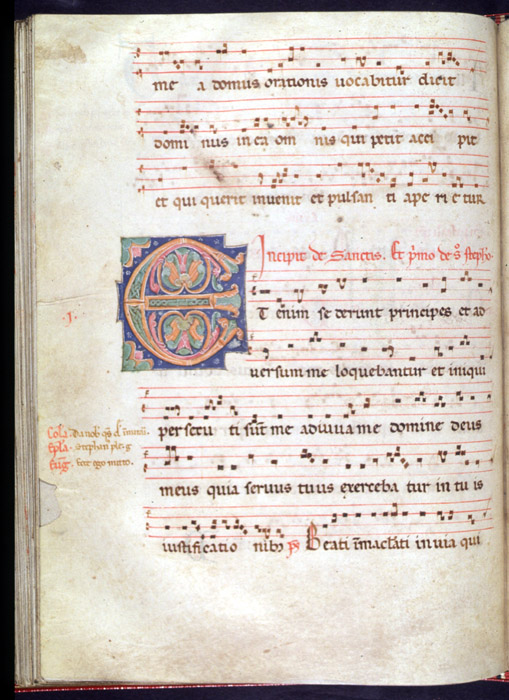 me a domus orationis uocabitur dicit
domi nus in ea om nis qui petit acci pit
et qui querit inuenit et pulsan ti ape ri e tur
Incipit de Sanctis. Et p̄mo de s̄ steph̄o.
ET enim se derunt principes et ad
uersum me loquebantur et iniqui
.I.
persecu ti sūt me adiuua me domine deus
meus quia seruus tuus exerceba tur in tu is
iustificatio nibꝫ p̄s Beati īmac̄lati in uia qui